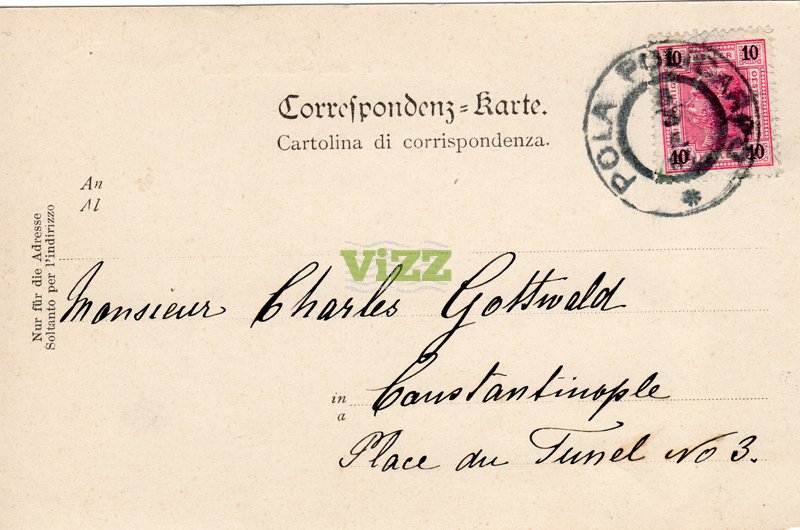 10 10
10 10
POLA POLICARPO
Correspondenz-Karte.
Cartolina di corrispondenza.
An
Al
Nur für die Adresse
Soltanto per l'indirizzo
ViZZ
Monsieur Charles Gottwald
in
a
Constantinople
Place du Tunel No 3.